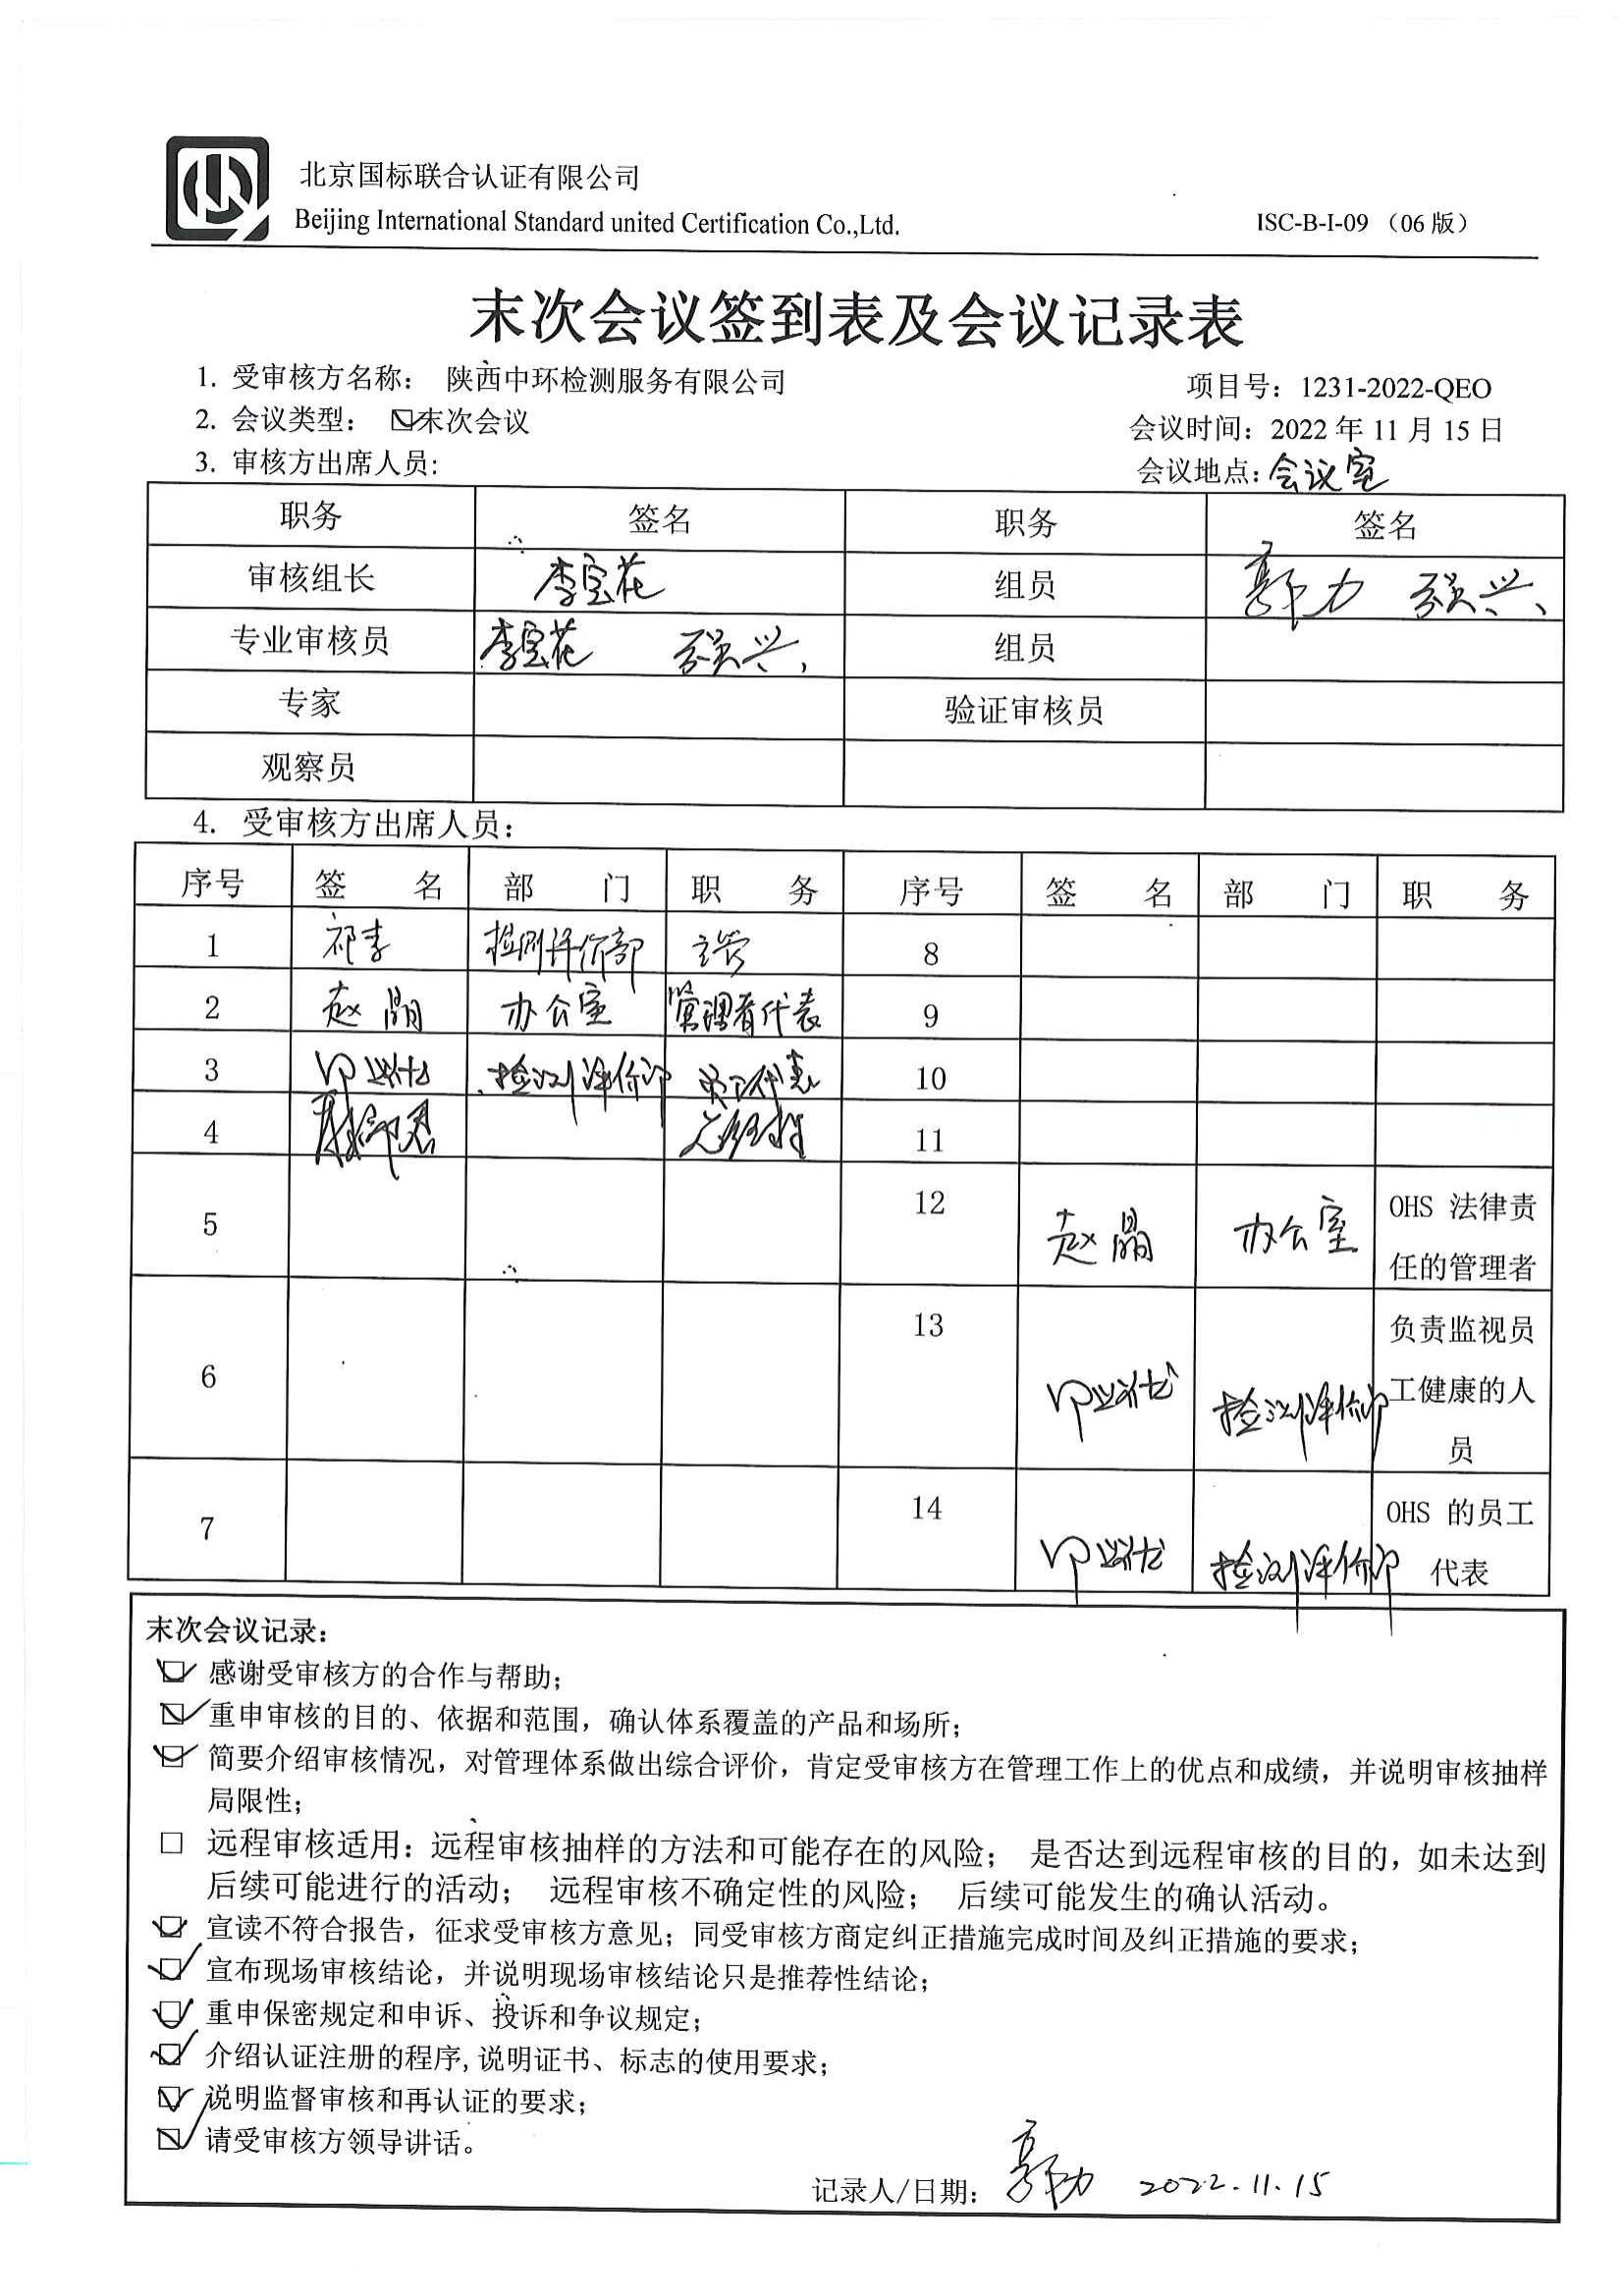 北京国标联合认证有限公司
Beijing International Standard united Certification Co.,Ltd.
ISC-B-I-09 （06 版）
末次会议签到表及会议记录表
1. 受审核方名称： 陕西中环检测服务有限公司 项目号：1231-2022-QEO
2. 会议类型： ☑末次会议 会议时间：2022 年 11 月 15 日
3. 审核方出席人员: 会议地点：会议室
职务 签名 职务 签名
审核组长 李宝花 组员 郭力
专业审核员 李宝花 组员
专家 验证审核员
观察员
4. 受审核方出席人员：
序号 签 名 部 门 职 务 序号 签 名 部 门 职 务
1 祁李 检测评价部 主管 8
2 赵晶 办公室 管理者代表 9
3 检测评价部 员工代表 10
4 总经理 11
5 12 赵晶 办公室 OHS 法律责
任的管理者
6 13 检测评价部 负责监视员
工健康的人
员
7 14 检测评价部 OHS 的员工
代表
末次会议记录：
☑ 感谢受审核方的合作与帮助；
☑ 重申审核的目的、依据和范围，确认体系覆盖的产品和场所；
☑ 简要介绍审核情况，对管理体系做出综合评价，肯定受审核方在管理工作上的优点和成绩，并说明审核抽样
局限性；
□ 远程审核适用：远程审核抽样的方法和可能存在的风险； 是否达到远程审核的目的，如未达到
后续可能进行的活动； 远程审核不确定性的风险； 后续可能发生的确认活动。
☑ 宣读不符合报告，征求受审核方意见；同受审核方商定纠正措施完成时间及纠正措施的要求；
☑ 宣布现场审核结论，并说明现场审核结论只是推荐性结论；
☑ 重申保密规定和申诉、投诉和争议规定；
☑ 介绍认证注册的程序,说明证书、标志的使用要求；
☑ 说明监督审核和再认证的要求；
☑ 请受审核方领导讲话。
记录人/日期： 郭力 2022.11.15